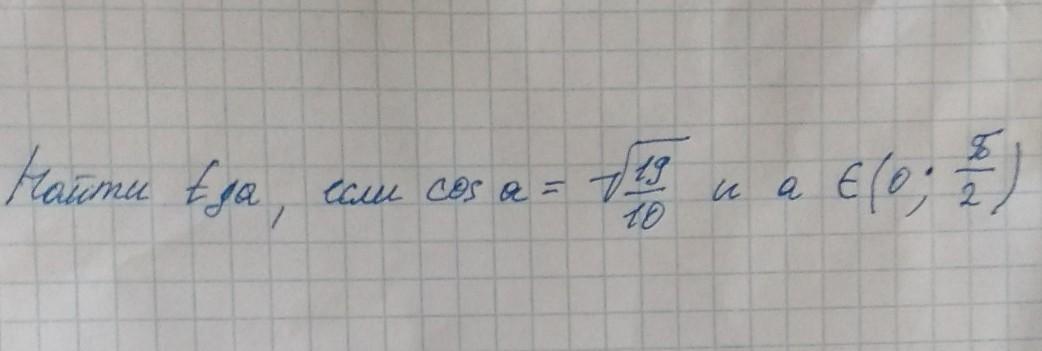 Найти tga, если cos a = √19/10 и a ∈ (0; π/2)